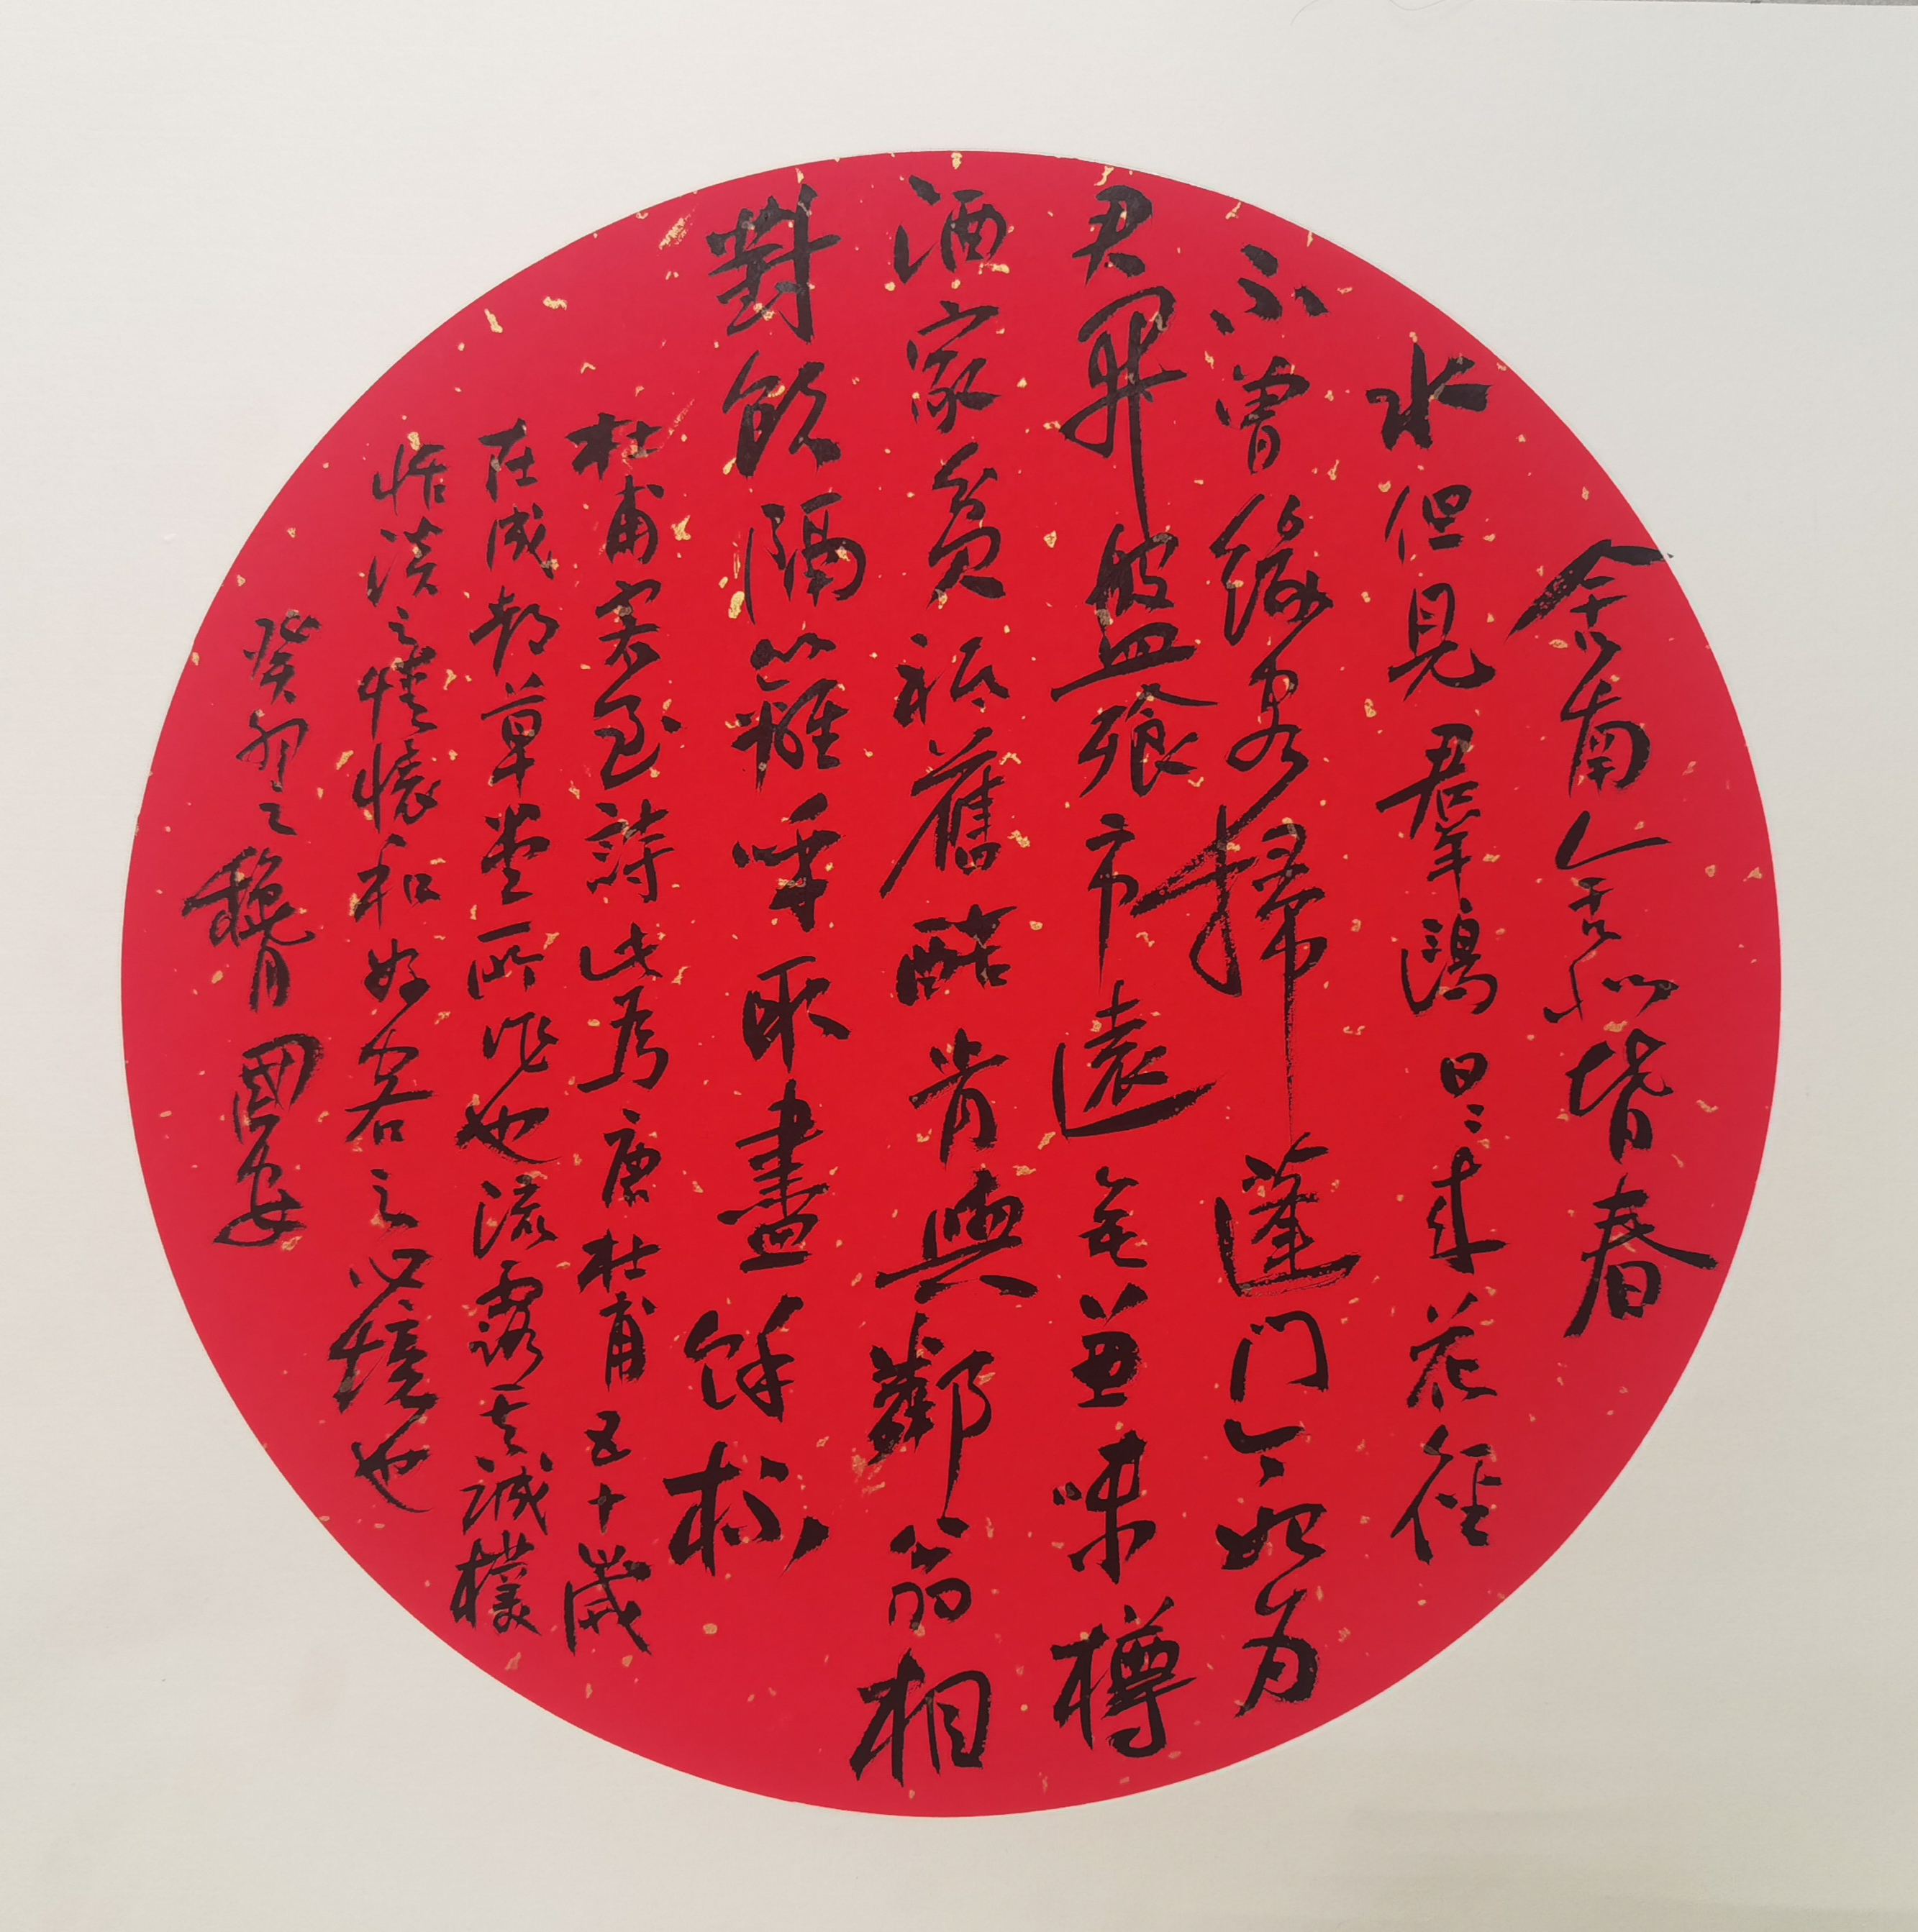 舍南舍北皆春
水但見羣鷗日〻来花徑
不曾緣客掃蓬门今始为
君開盤飧市遠無兼味樽
酒家貧祗舊醅肯與鄰翁相
對飲隔籬呼取盡餘杯
杜甫客至詩此为唐杜甫五十歲
在成都草堂所作也流露其誠樸
恬淡之情懷和好客之心境也
癸卯之穐月國安